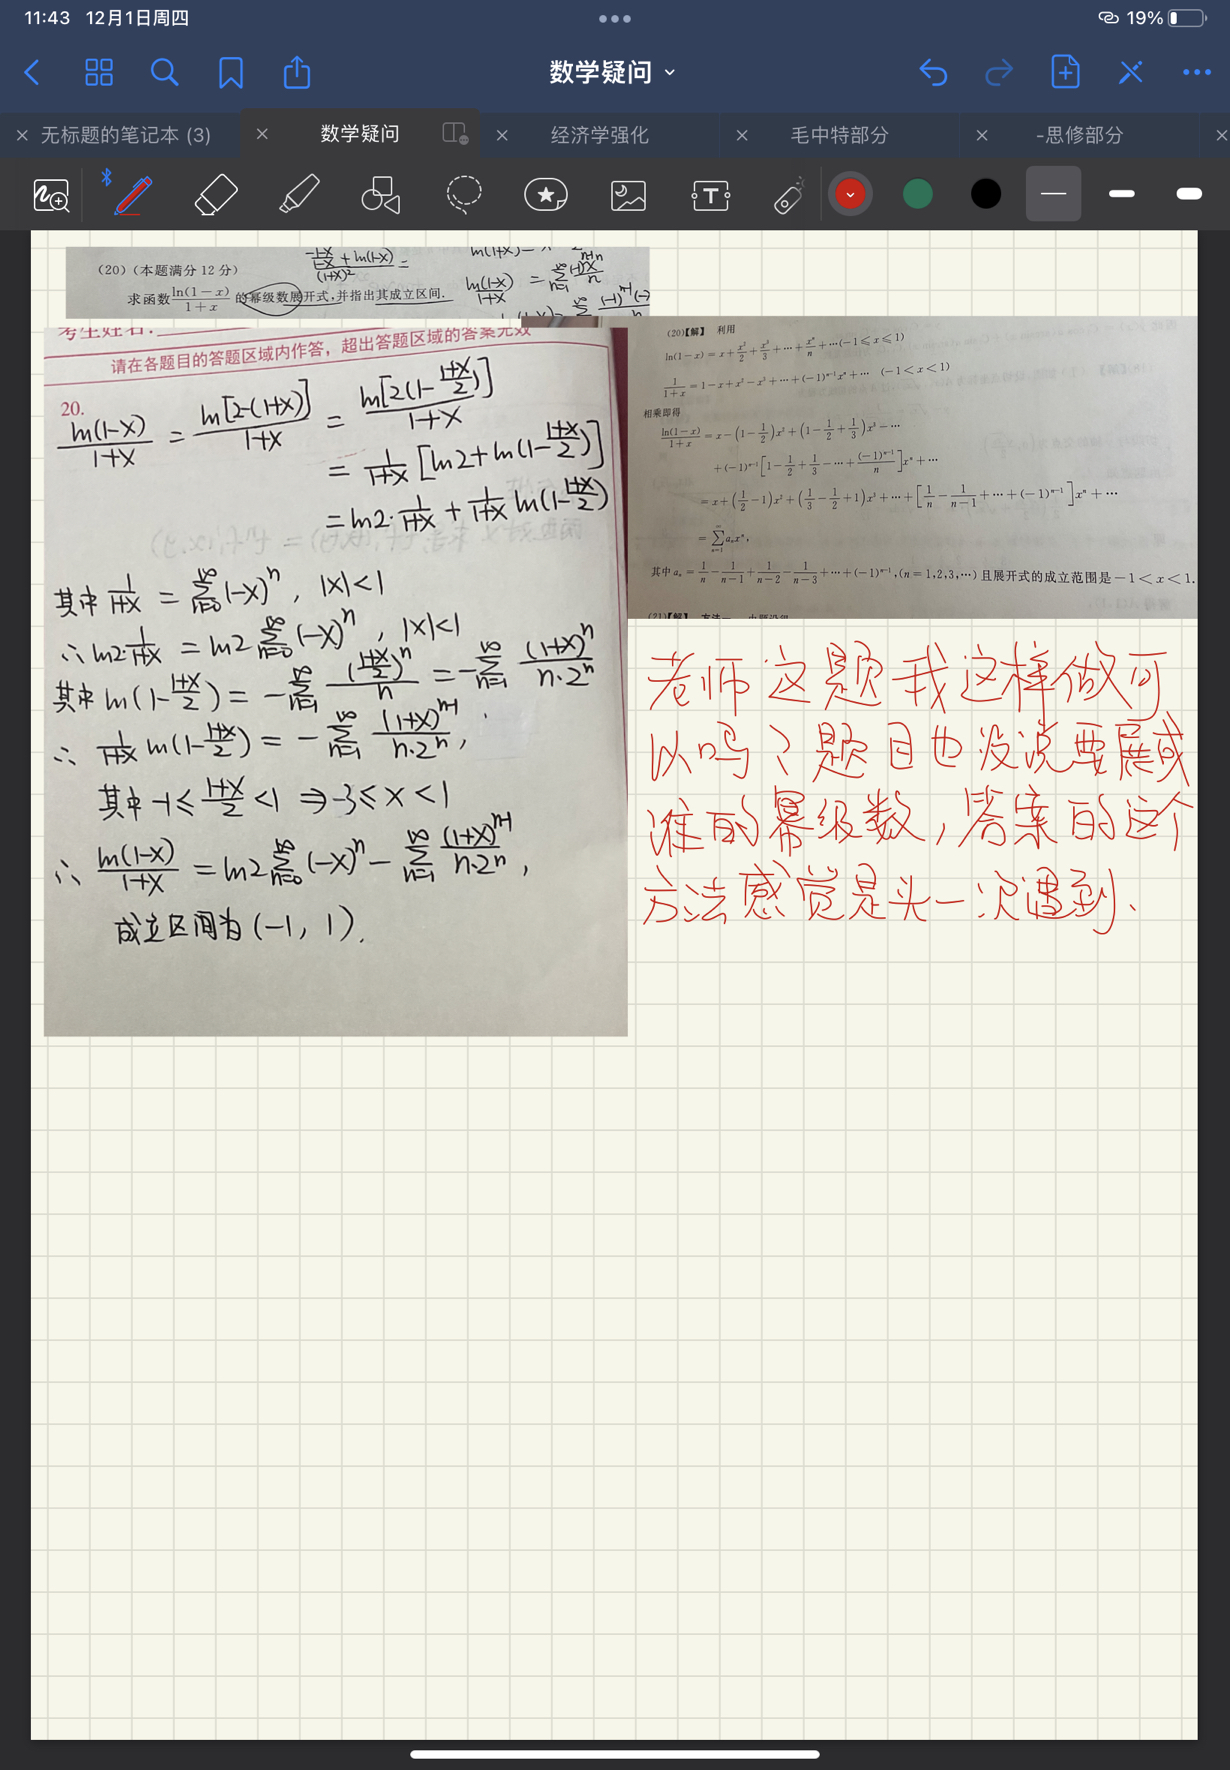 11:43 12月1日周四
19%
数学疑问
无标题的笔记本 (3)
数学疑问
经济学强化
毛中特部分
-思修部分
(20)(本题满分 12 分)
求函数 ln(1-x)/(1+x) 的幂级数展开式,并指出其成立区间.
考生姓名:
请在各题目的答题区域内作答，超出答题区域的答案无效
20.
ln(1-x)/(1+x) = ln[2-(1+x)]/(1+x) = ln[2(1-(1+x)/2)]/(1+x)
= 1/(1+x) [ln2+ln(1-(1+x)/2)]
= ln2·1/(1+x) + 1/(1+x) ln(1-(1+x)/2)
其中 1/(1+x) = ∑_{n=0}^∞ (-x)^n, |x|<1
∴ ln2 1/(1+x) = ln2 ∑_{n=0}^∞ (-x)^n, |x|<1
其中 ln(1-(1+x)/2) = -∑_{n=1}^∞ ((1+x)/2)^n/n = -∑_{n=1}^∞ (1+x)^n/(n·2^n)
∴ 1/(1+x) ln(1-(1+x)/2) = -∑_{n=1}^∞ (1+x)^{n-1}/(n·2^n),
其中 -1≤(1+x)/2<1 ⇒ -3≤x<1
∴ ln(1-x)/(1+x) = ln2 ∑_{n=0}^∞ (-x)^n - ∑_{n=1}^∞ (1+x)^{n-1}/(n·2^n),
成立区间为(-1, 1).
(20)【解】 利用
ln(1-x) = x + x²/2 + x³/3 + ⋯ + xⁿ/n + ⋯(-1≤x≤1)
1/(1+x) = 1-x+x²-x³+⋯+(-1)^{n-1}xⁿ+⋯ (-1<x<1)
相乘即得
ln(1-x)/(1+x) = x-(1-1/2)x²+(1-1/2+1/3)x³-⋯
+(-1)^{n-1}[1-1/2+1/3-⋯+(-1)^{n-1}/n]xⁿ+⋯
= x+(1/2-1)x²+(1/3-1/2+1)x³+⋯+[1/n-1/(n-1)+⋯+(-1)^{n-1}]xⁿ+⋯
= ∑_{n=1}^∞ aₙxⁿ,
其中 aₙ = 1/n-1/(n-1)+1/(n-2)-1/(n-3)+⋯+(-1)^{n-1},(n=1,2,3,⋯) 且展开式的成立范围是 -1<x<1.
老师这题我这样做可
以吗？题目也没说要展成
谁的幂级数，答案的这个
方法感觉是头一次遇到.